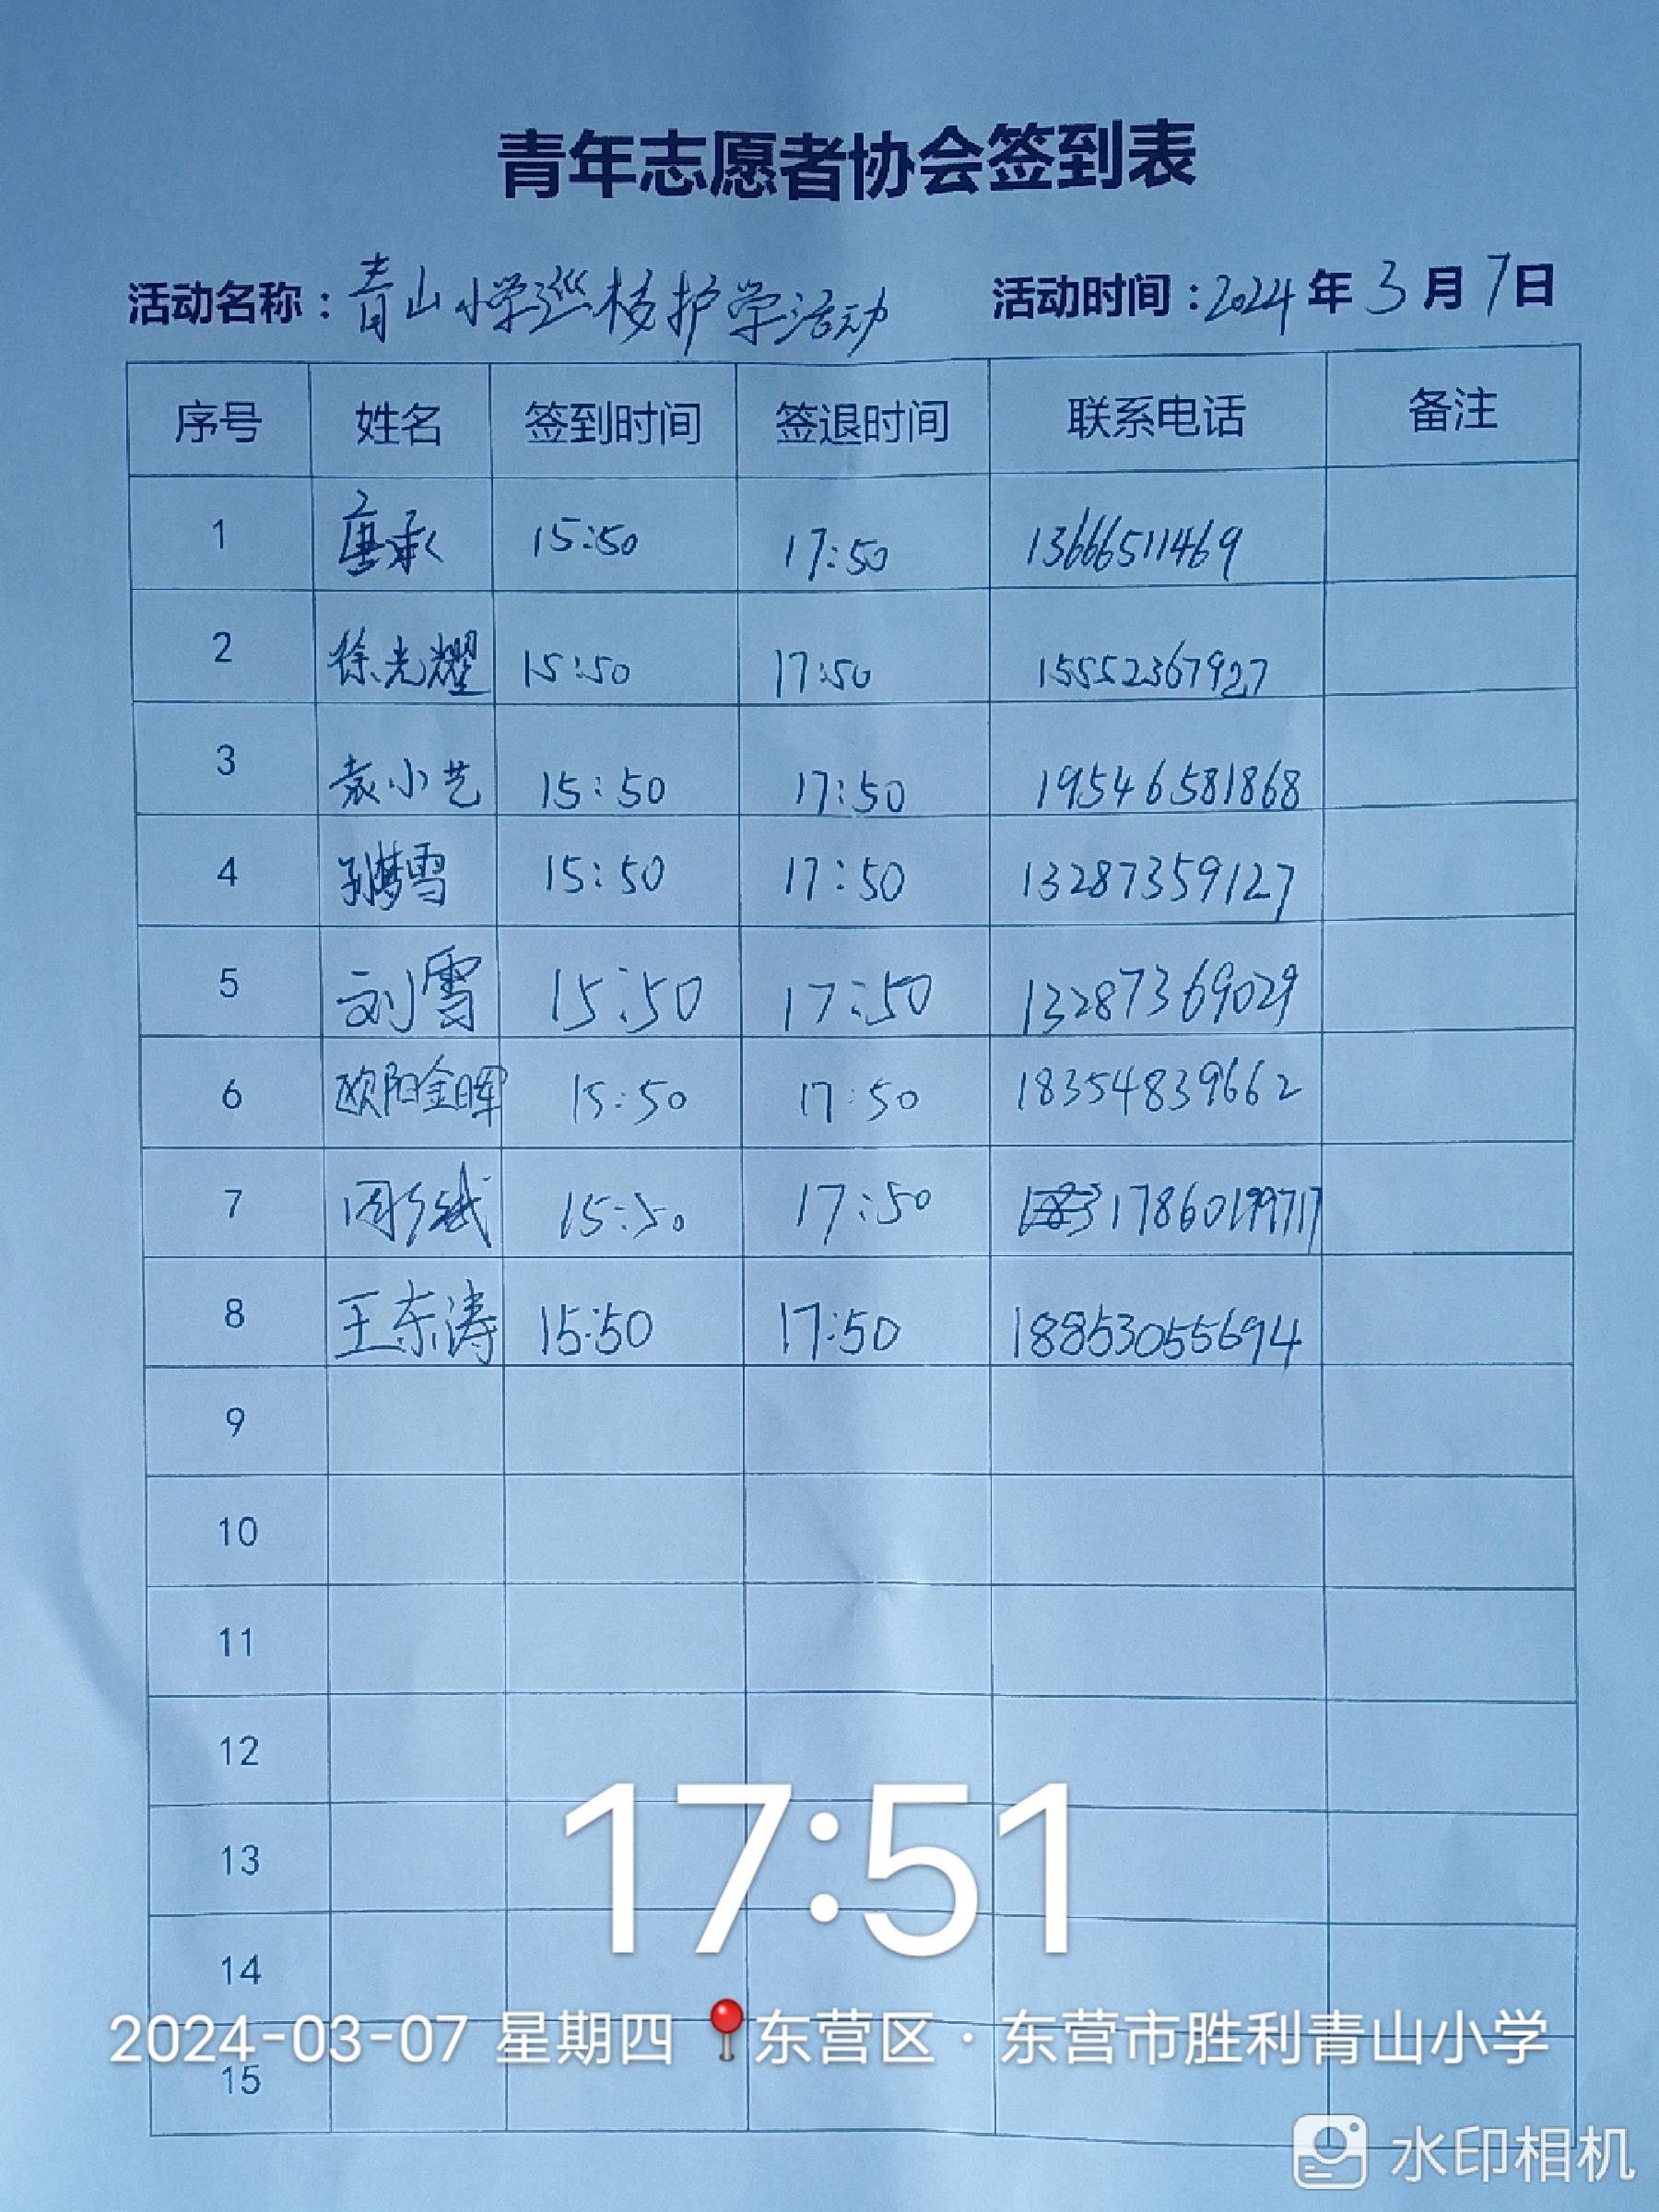 青年志愿者协会签到表
活动名称：青山小学巡校护学活动 活动时间：2024年3月7日
序号 姓名 签到时间 签退时间 联系电话 备注
1 唐承 15:50 17:50 13666511469
2 徐光耀 15:50 17:50 15552367927
3 袁小艺 15:50 17:50 19546581868
4 孙梦雪 15:50 17:50 13287359127
5 刘雪 15:50 17:50 13287369029
6 欧阳金晖 15:50 17:50 18354839662
7 15:50 17:50 17860199717
8 王东涛 15:50 17:50 18853055694
9
10
11
12
13
14
15
17:51
2024-03-07 星期四 东营区·东营市胜利青山小学
水印相机